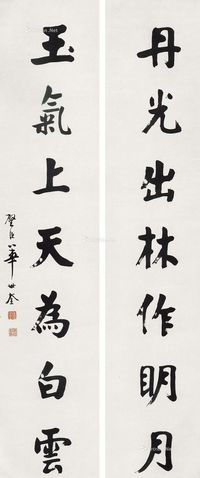 丹光出林作明月
玉氣上天為白雲
華世奎